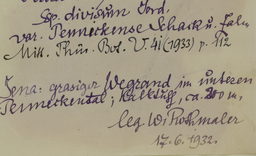 Sp. divisum Ord.
var. Penneckense Schack u.
Mitt. Thür. Bot. V. 41 (1933) p. 112
Jena: grasiger Wegrand im unteren
Penneckental; Kalkzug, ca. 200 m.
leg. W. Rothmaler
17. 6. 1932.